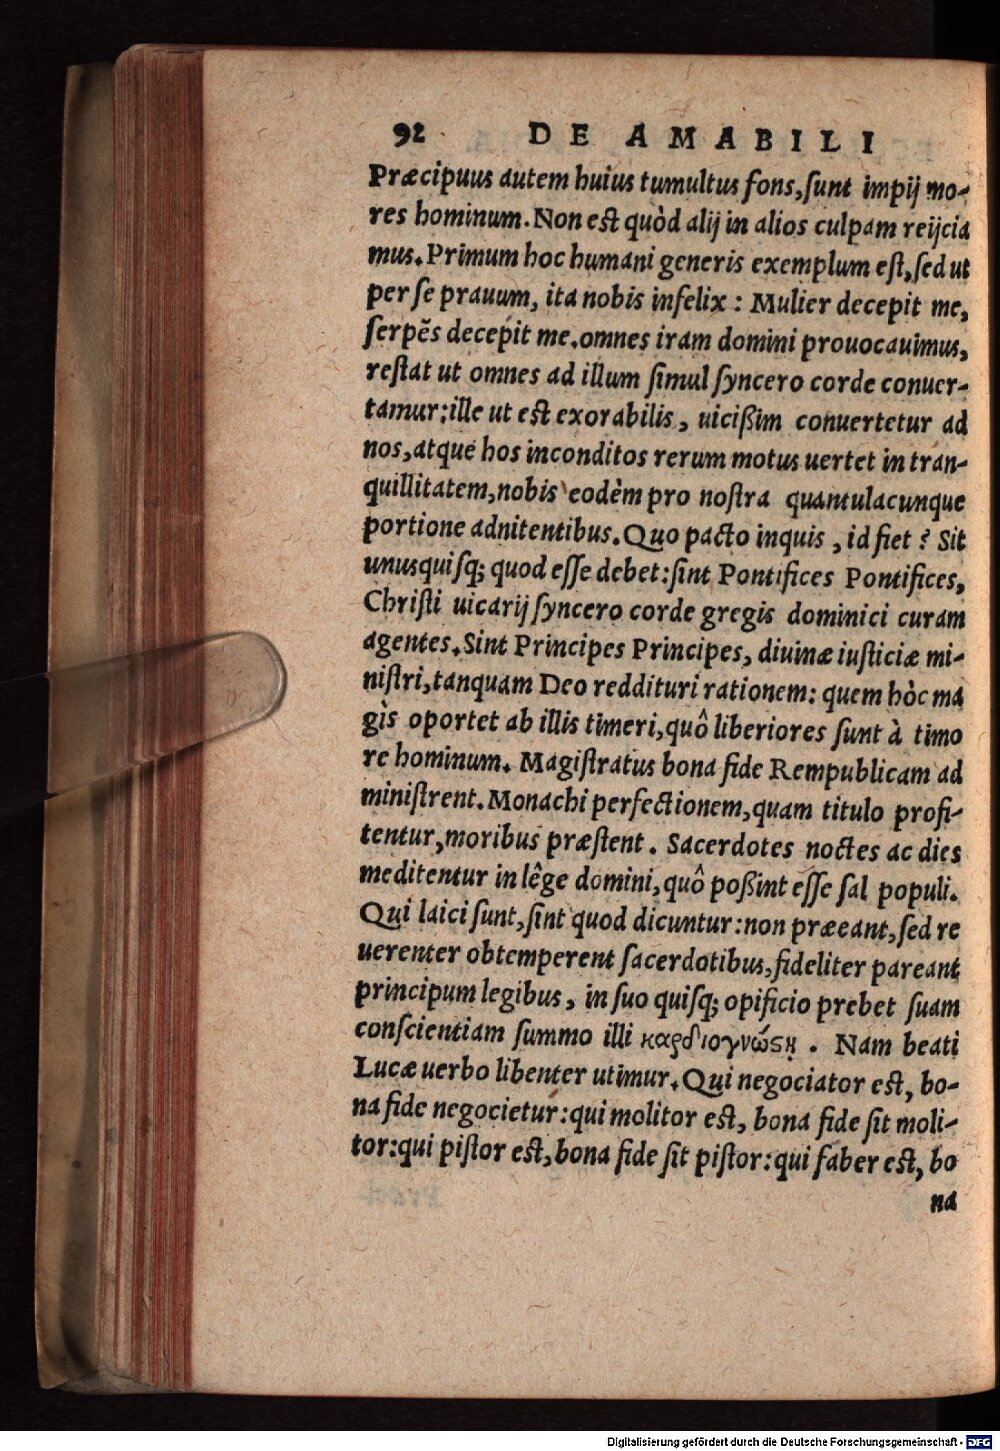 92 DE AMABILI
Præcipuus autem huius tumultus fons, ſunt impij mo-
res hominum. Non est quòd alij in alios culpam reijcia
mus. Primum hoc humani generis exemplum eſt, ſed ut
per ſe prauum, ita nobis infelix : Mulier decepit me,
ſerpẽs decepit me. omnes iram domini prouocauimus,
reſtat ut omnes ad illum ſimul ſyncero corde conuer-
tamur: ille ut est exorabilis, uicißim conuertetur ad
nos, atque hos inconditos rerum motus uertet in tran-
quillitatem, nobis eodèm pro noſtra quantulacunque
portione adnitentibus. Quo pacto inquis, id fiet? Sit
unusquiſq; quod eſſe debet: ſint Pontifices Pontifices,
Chriſti uicarij ſyncero corde gregis dominici curam
agentes. Sint Principes Principes, diuinæ iuſticiæ mi-
niſtri, tanquam Deo reddituri rationem: quem hòc ma
gìs oportet ab illis timeri, quô liberiores ſunt à timo
re hominum. Magiſtratus bona fide Rempublicam ad
miniſtrent. Monachi perfectionem, quam titulo profi-
tentur, moribus præſtent. Sacerdotes noctes ac dies
meditentur in lêge domini, quô poßint eſſe ſal populi.
Qui laici ſunt, ſint quod dicuntur: non præeant, ſed re
uerenter obtemperent ſacerdotibus, fideliter pareant
principum legibus, in ſuo quiſq; opificio prebet ſuam
conſcientiam ſummo illi καρδιογνώςῃ. Nam beati
Lucæ uerbo libenter utimur. Qui negociator est, bo-
na fide negocietur: qui molitor est, bona fide ſit moli-
tor: qui piſtor est, bona fide ſit piſtor: qui faber est, bo
na
Digitalisierung gefördert durch die Deutsche Forschungsgemeinschaft - DFG